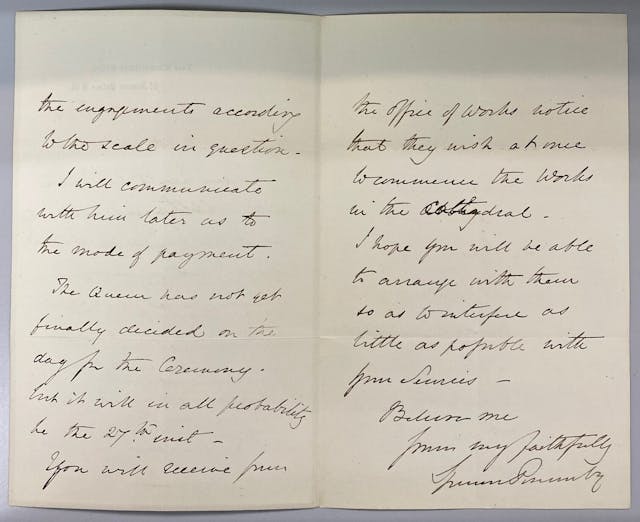 the engagements according
to the scale in question -
I will communicate
with him later as to
the mode of payment.
The Queen has not yet
finally decided on the
day for the Ceremony.
but it will in all probability
be the 27th inst -
You will receive from
the Office of Works notice
that they wish at once
to commence the Works
in the Cathedral -
I hope you will be able
to arrange with them
so as to interfere as
little as possible with
your Services -
Believe me
yours very faithfully
Spencer Ponsonby